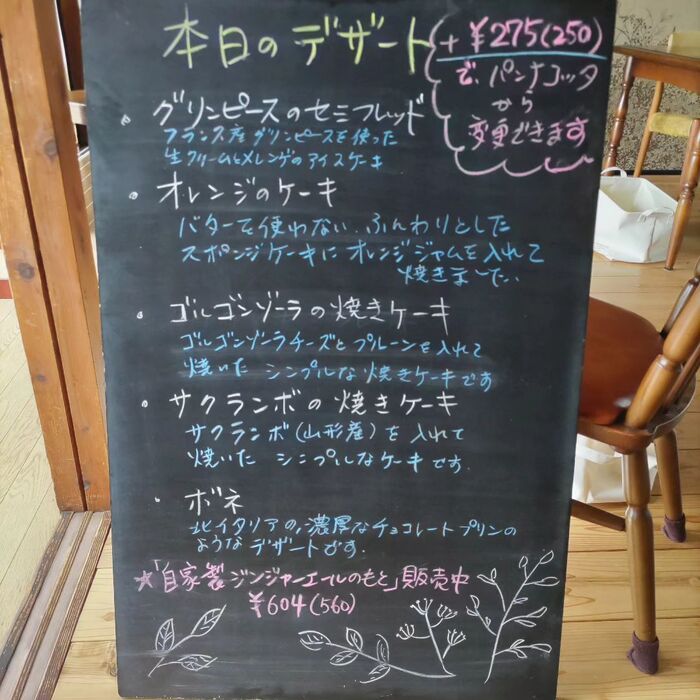 本日のデザート
+ ¥275(250)
で、パンナコッタ
から
変更できます
・グリンピースのセミフレッド
フランス産グリンピースを使った
生クリームとメレンゲのアイスケーキ
・オレンジのケーキ
バターを使わない、ふんわりとした
スポンジケーキにオレンジジャムを入れて
焼きました。
・ゴルゴンゾーラの焼きケーキ
ゴルゴンゾーラチーズとプルーンを入れて
焼いた シンプルな焼きケーキです
・サクランボの焼きケーキ
サクランボ(山形産)を入れて
焼いた シンプルなケーキです。
・ボネ
北イタリアの、濃厚なチョコレートプリンの
ようなデザートです。
★「自家製ジンジャーエールのもと」販売中
¥604(560)